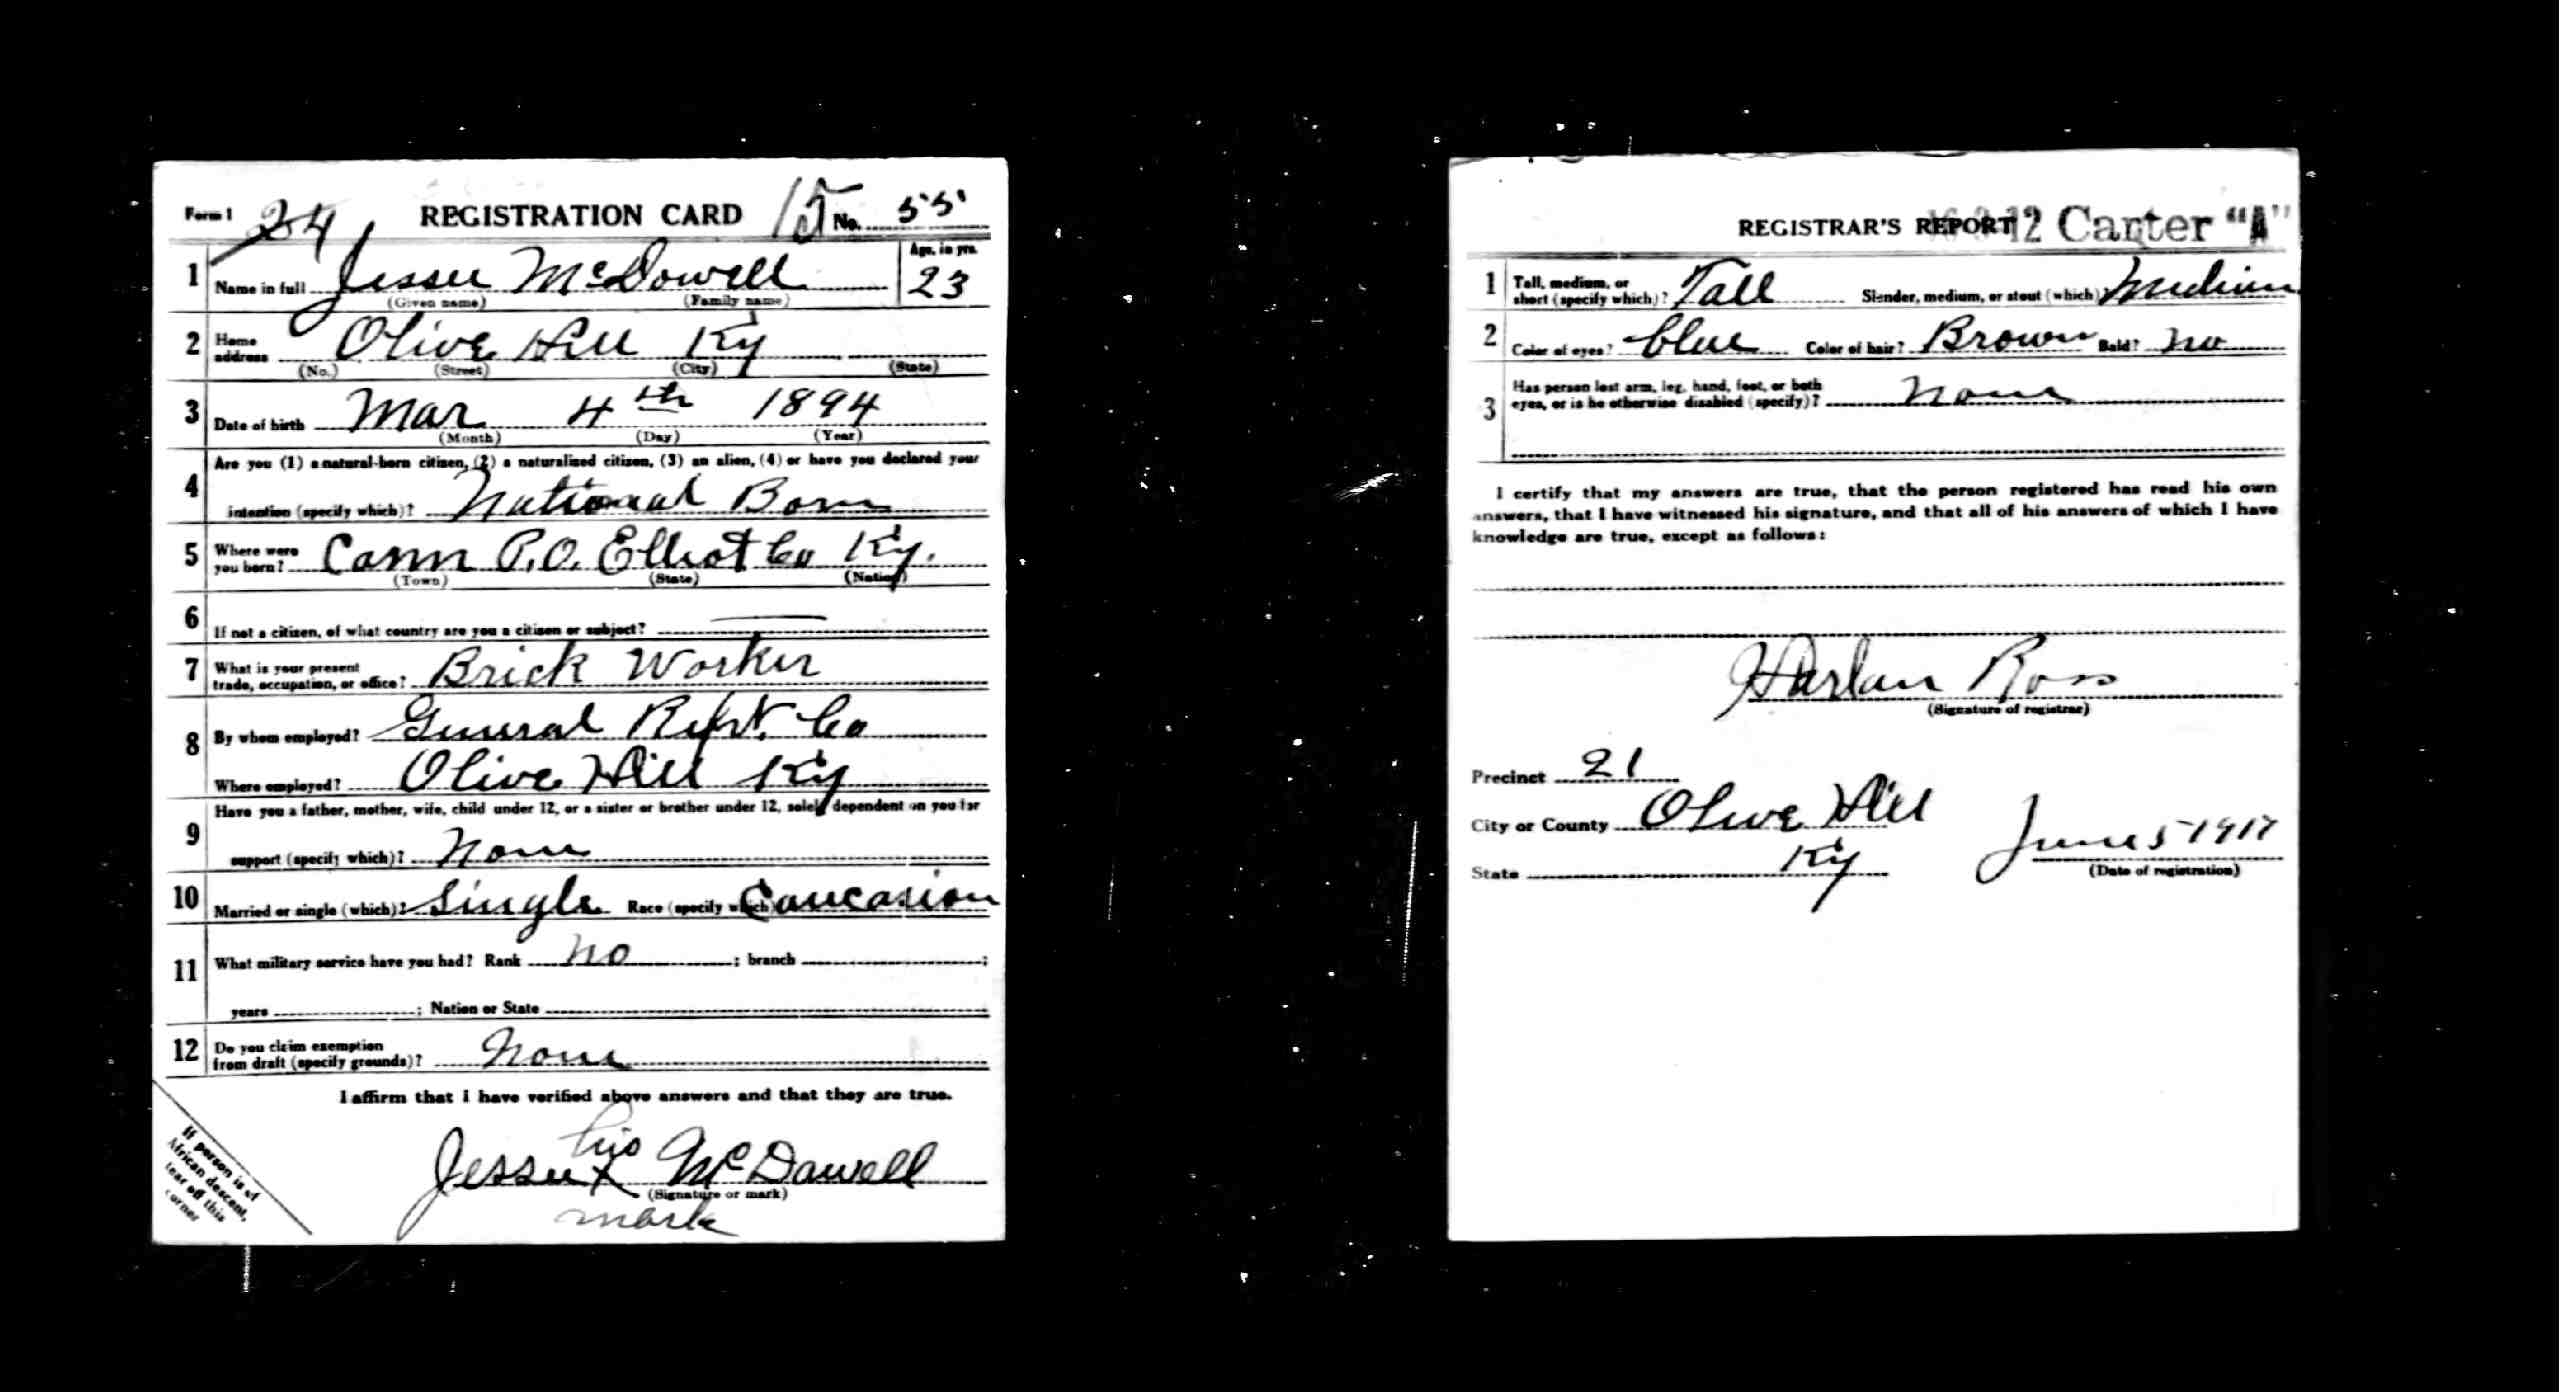 Form 1 24 REGISTRATION CARD 15 No. 55
1 Name in full Jesse McDowell Age, in yrs. 23
(Given name) (Family name)
2 Home address Olive Hill Ky
(No.) (Street) (City) (State)
3 Date of birth Mar 4th 1894
(Month) (Day) (Year)
4 Are you (1) a natural-born citizen, (2) a naturalized citizen, (3) an alien, (4) or have you declared your
intention (specify which)? National Born
5 Where were you born? Cann P.O. Elliot Co Ky.
(Town) (State) (Nation)
6 If not a citizen, of what country are you a citizen or subject?
7 What is your present trade, occupation, or office? Brick Worker
8 By whom employed? General Refrt. Co
Where employed? Olive Hill Ky
9 Have you a father, mother, wife, child under 12, or a sister or brother under 12, solely dependent on you for
support (specify which)? None
10 Married or single (which)? Single Race (specify which) Caucasion
11 What military service have you had? Rank no ; branch ;
years ; Nation or State
12 Do you claim exemption from draft (specify grounds)? None
I affirm that I have verified above answers and that they are true.
his
Jesse X McDowell
(Signature or mark)
mark
If person is of
African descent,
tear off this
corner
REGISTRAR'S REPORT 12 Carter "A"
1 Tall, medium, or short (specify which)? Tall Slender, medium, or stout (which) Medium
2 Color of eyes? blue Color of hair? Brown Bald? no
3 Has person lost arm, leg, hand, foot, or both
eyes, or is he otherwise disabled (specify)? None
I certify that my answers are true, that the person registered has read his own
answers, that I have witnessed his signature, and that all of his answers of which I have
knowledge are true, except as follows:
Harlan Ross
(Signature of registrar)
Precinct 21
City or County Olive Hill
State Ky
June 5 1917
(Date of registration)